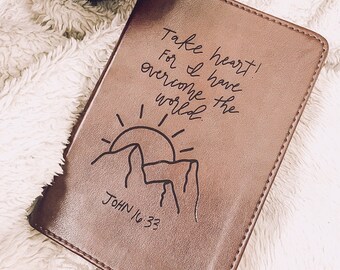 Take heart!
For I have
overcome the
world.
JOHN 16:33